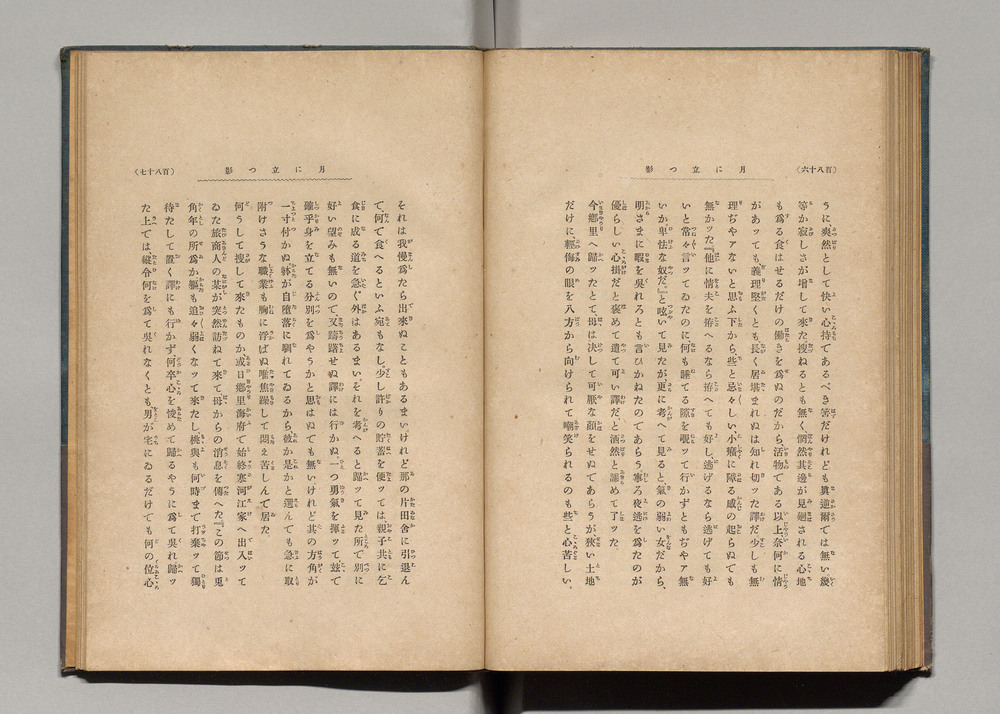 （百八十六）
月に立つ影
うに、爽然として快い心持であるべき筈だけれども眞逆爾では無い、幾
等か寂しさが増して來た、搜ねるとも無く、惘然其邊が見廻される心地
も爲る、食はせるだけの働きを爲ぬのだから、活物である以上、奈何に情
があッても、義理堅くとも、長く居堪まれぬは知れ切ッた譯だ、少しも無
理ぢやアないと思ふ下から、些と忌々しい小癪に障る感の起らぬでも
無かッた『他に情夫を拵へるなら拵へても好し、逃げるなら逃げても好
いと常々言ッてゐたのに、何も睡てる隙を覗ッて行かずともぢやア無
いか卑怯な奴だ。』と呟いて見たが、更に考へて見ると氣の弱い女だから、
明さまに暇を吳れろとも言ひかねたのであらう、寧ろ夜逃を爲たのが
優らしい心掛だと褒めて遣て可い譯だ、と洒然と諦めて了ッた、
今鄕里へ歸ッたとて母は決して可厭な顏をせぬであらうが狹い土地
だけに輕侮の眼を八方から向けられて嘲笑られるのも些と心苦しい、
（百八十七）
月に立つ影
それは我慢爲たら出來ぬこともあるまい、けれど那の片田舍に引退ん
で、何で食へるといふ宛もなし、少し許りの貯蓄を使ッては親子共に乞
食に成る道を急ぐ外はあるまい、それを考へると歸ッて見た所で別に
好い望みも無いので、又躊躇せぬ譯には行かぬ、一つ勇氣を揮ッて玆で
確乎身を立てる分別を爲やうかと思はぬでも無いけれど其の方角が
一寸付かぬ、躰が自墮落に馴れてゐるから、彼か是かと選んでも急に取
附けさうな職業も胸に浮ばぬ唯焦躁して悶え苦しんで居た、
何うして搜して來たものか或日鄕里海府で始終寒河江家へ出入ッて
ゐた旅商人の某が突然訪ねて來て母からの消息を傳へた、『この節は兎
角年の所爲か軀も追々弱くなッて來たし、桃與も何時まで打棄ッて獨
待たして置く譯にも行かず、何卒心を悛めて歸るやうに爲て吳れ歸ッ
た上では縱令何を爲て吳れなくとも、男が宅にゐるだけでも何の位心